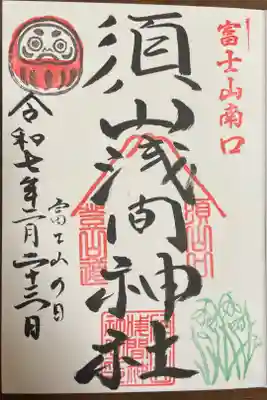 富士山南口
須山口
須山浅間神社
登山道
富士山の日
令和七年二月二十三日